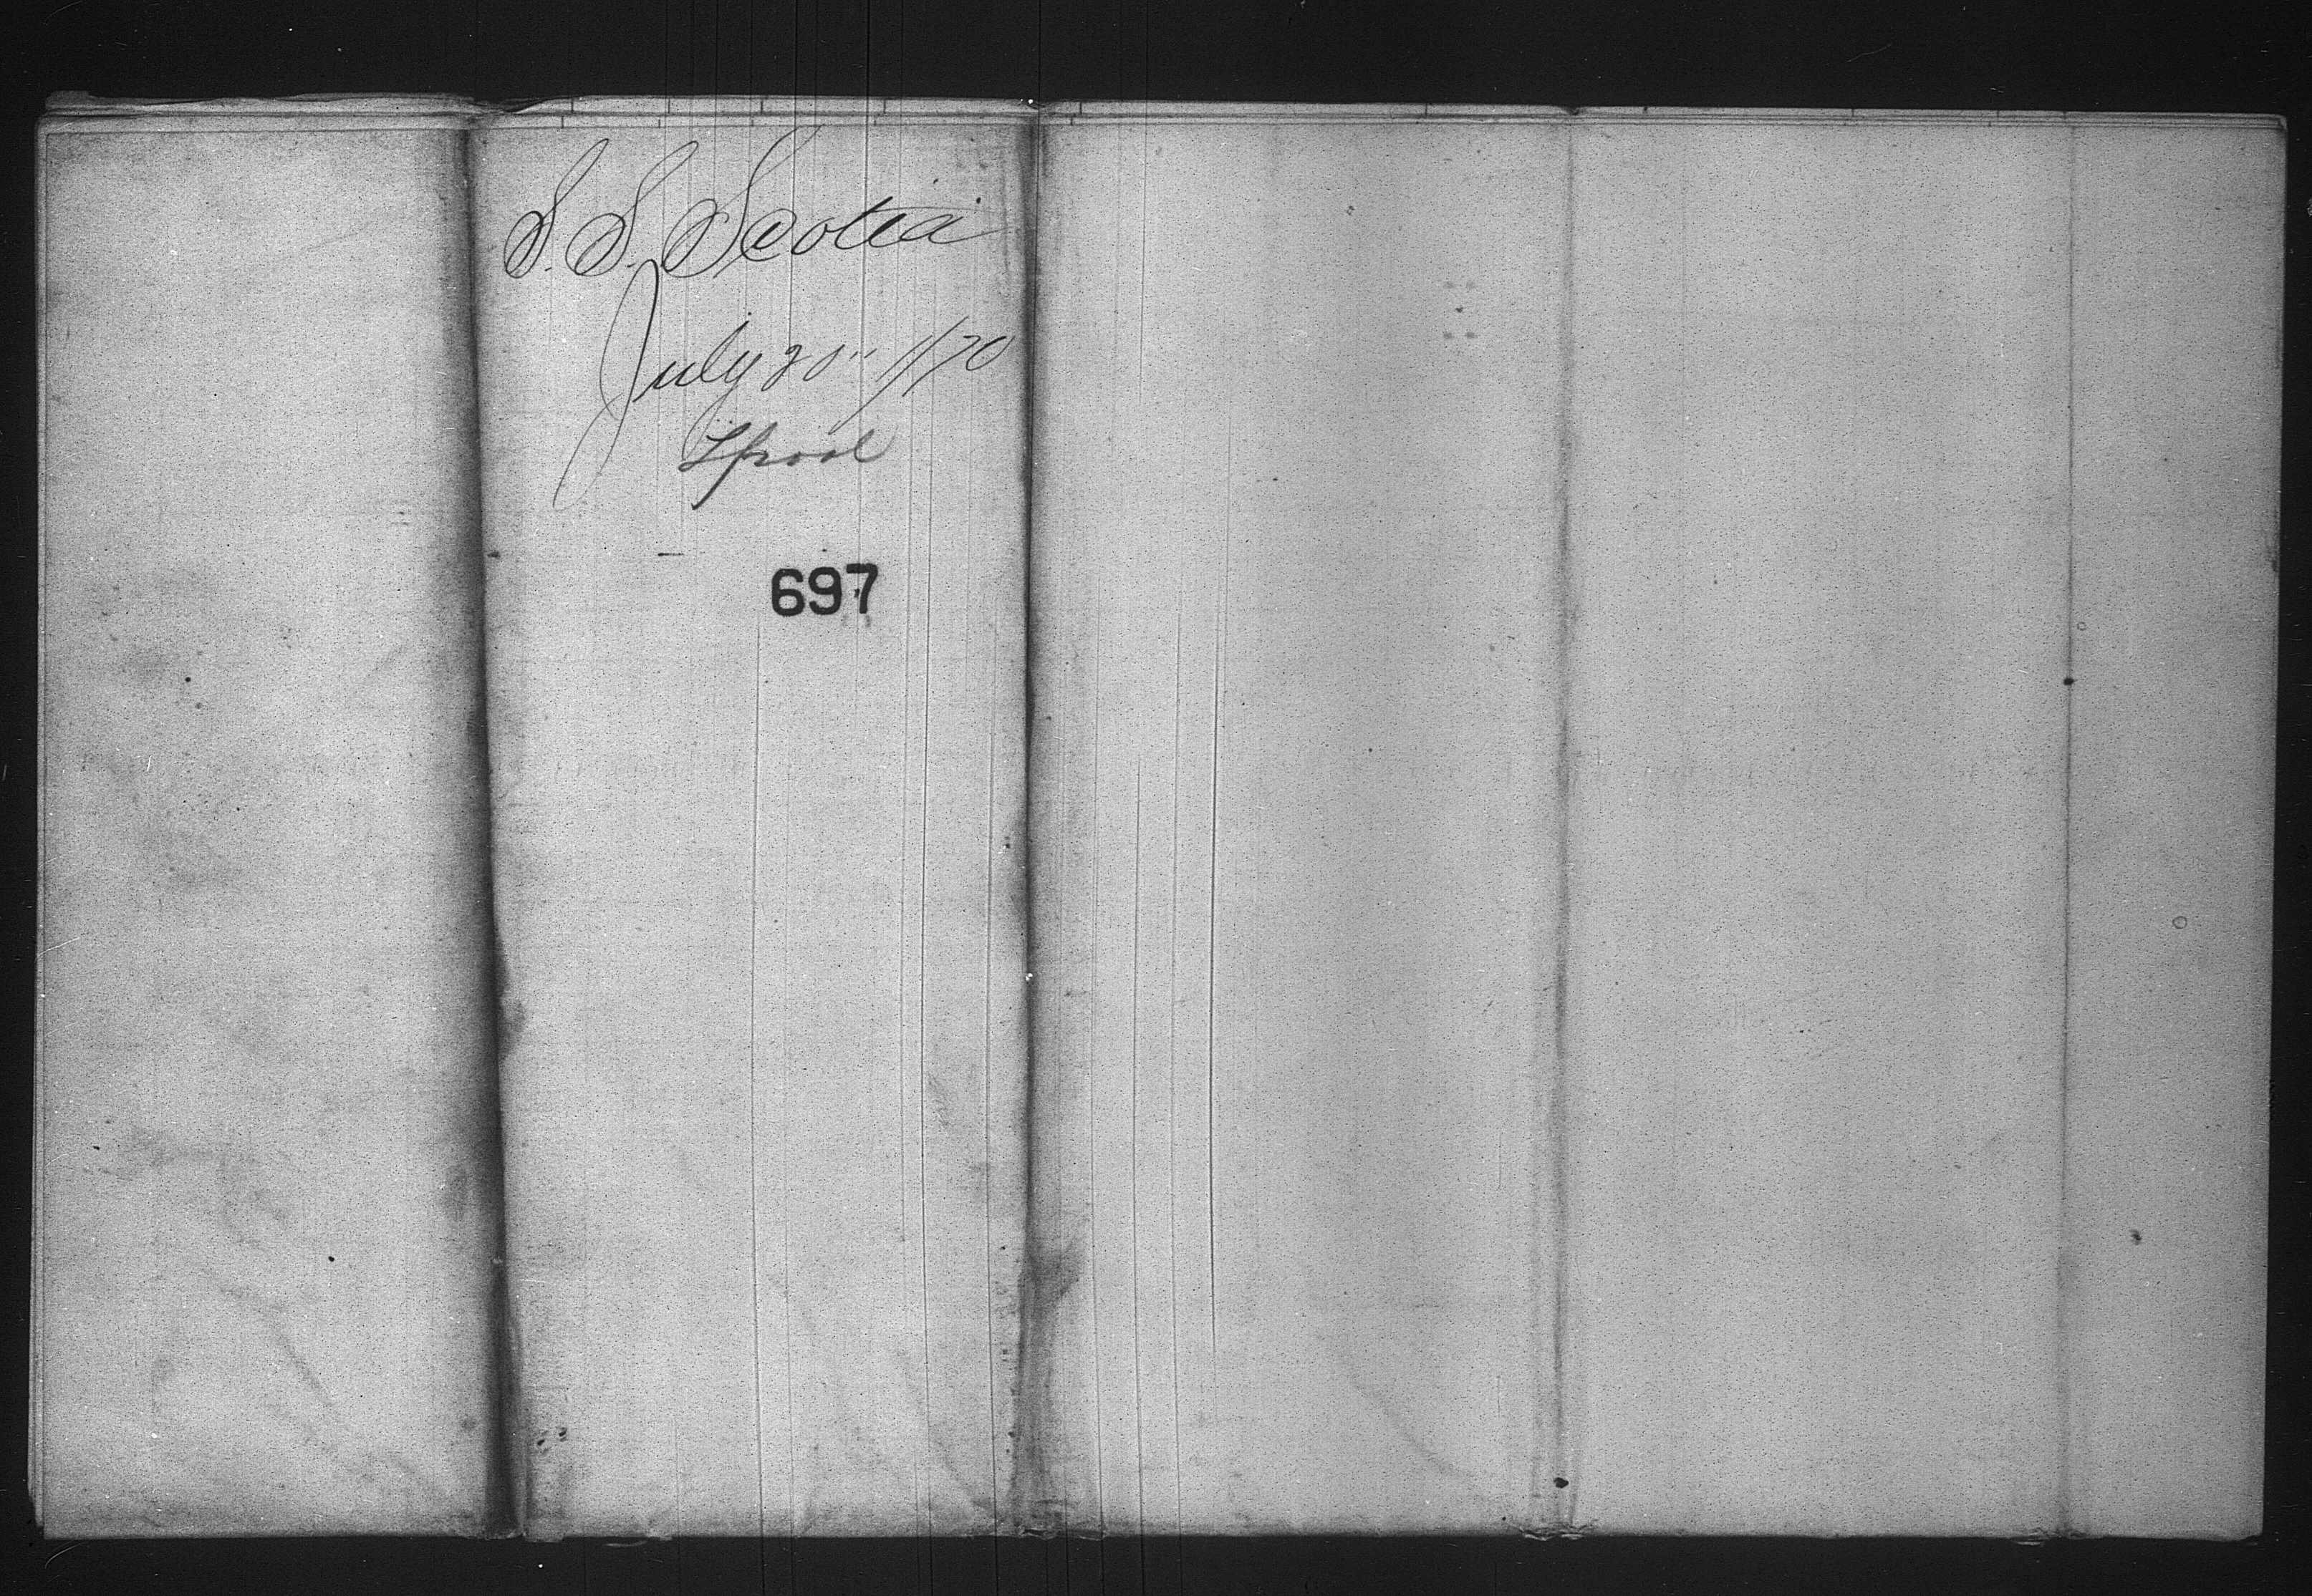 S. S. Scotia
July 20" 1870
Lpool
697